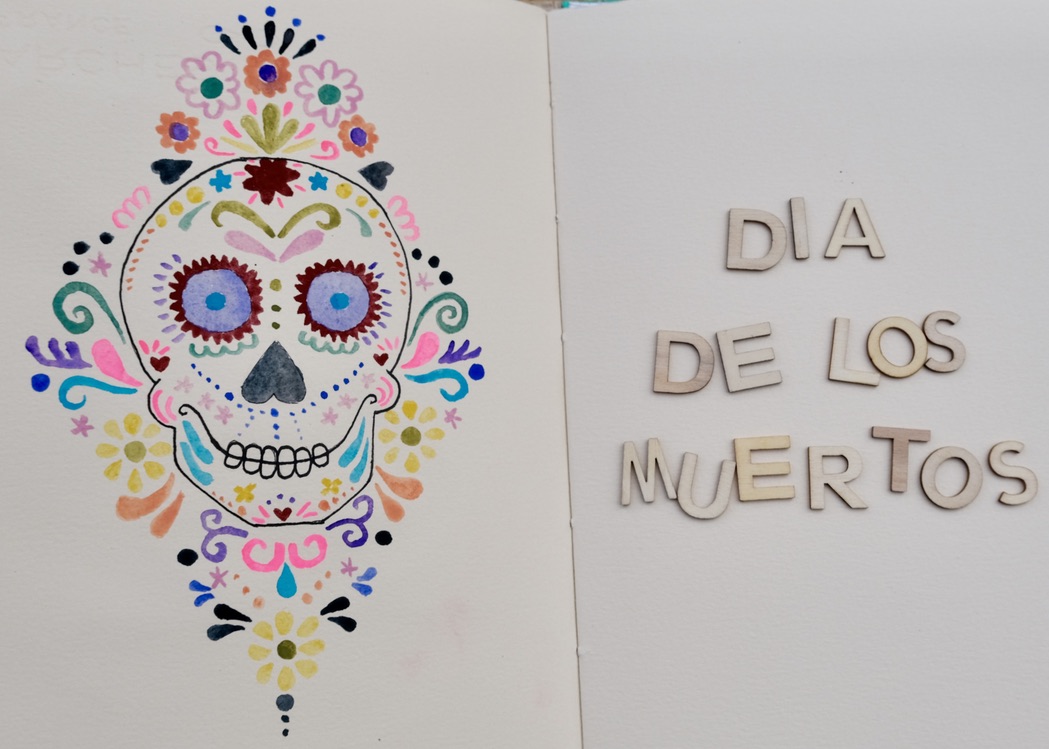 DIA
DE LOS
MUERTOS